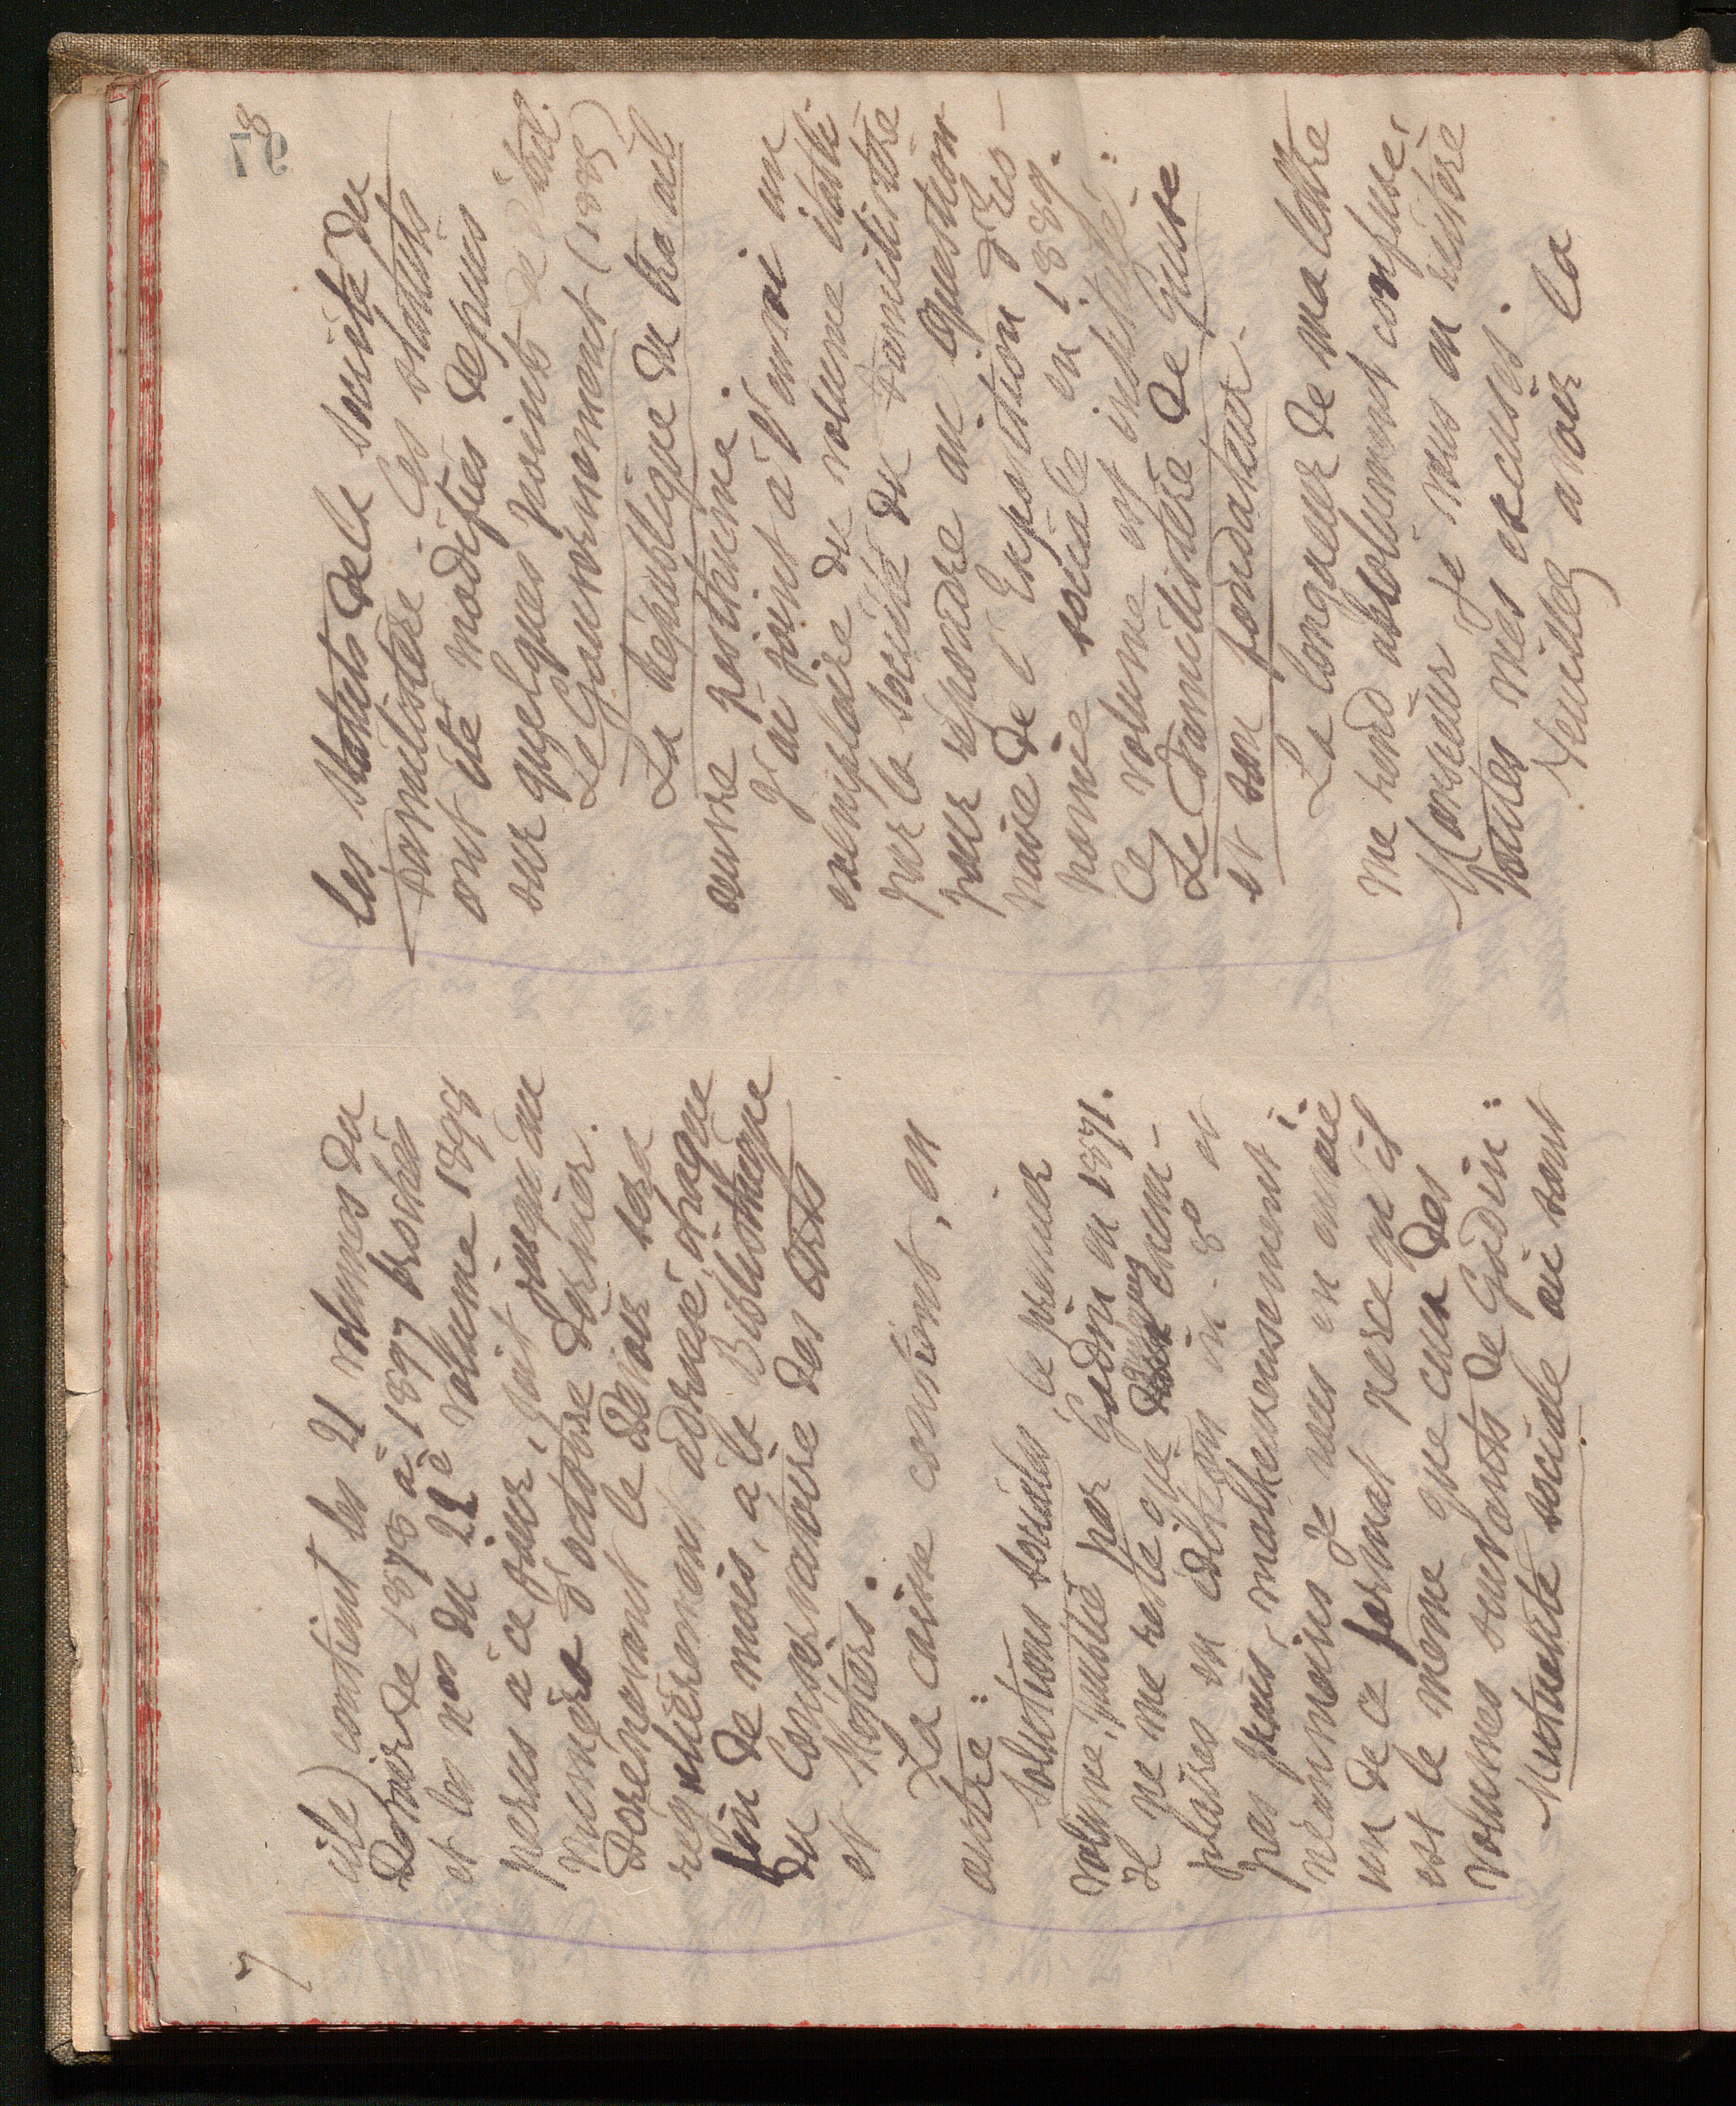 7
cile) contient les 21 volumes du
Devoir de 1878 à 1897 brochés
et les nos du 22e volume 1898
parus à ce jour, soit jusqu'au
numéro d'octobre dernier.
Dorénavant le Devoir sera
régulièrement adressé, chaque
fin de mois, à la Bibliothèque
du Conservatoire des Arts
et Métiers.
La caisse contient, en
outre :
Solutions sociales le premier
volume, publié par Godin en 1871.
Il ne me reste que quelques exem-
plaires en édition in-8o et
pas beaux, malheureusement ;
néanmoins je vous en envoie
un de ce format parce qu'il
est le même que ceux des
volumes suivants de Godin :
Mutualité sociale où sont
8
97
les Statuts de la Société du
Familistère. Ces statuts
ont été modifiés depuis
sur quelques points de détail.
Le Gouvernement (1883)
La République du travail
œuvre posthume.
J'ai joint à l'envoi un
exemplaire du volume édité
par la société du Familistère
pour répondre au Question-
naire de l'Exposition d'Eco-
nomie sociale en 1889.
Ce volume est intitulé :
Le Familistère de Guise
et son fondateur.
La longueur de ma lettre
me rend absolument confuse,
Monsieur je vous en réitère
toutes mes excuses.
Veuillez avoir la